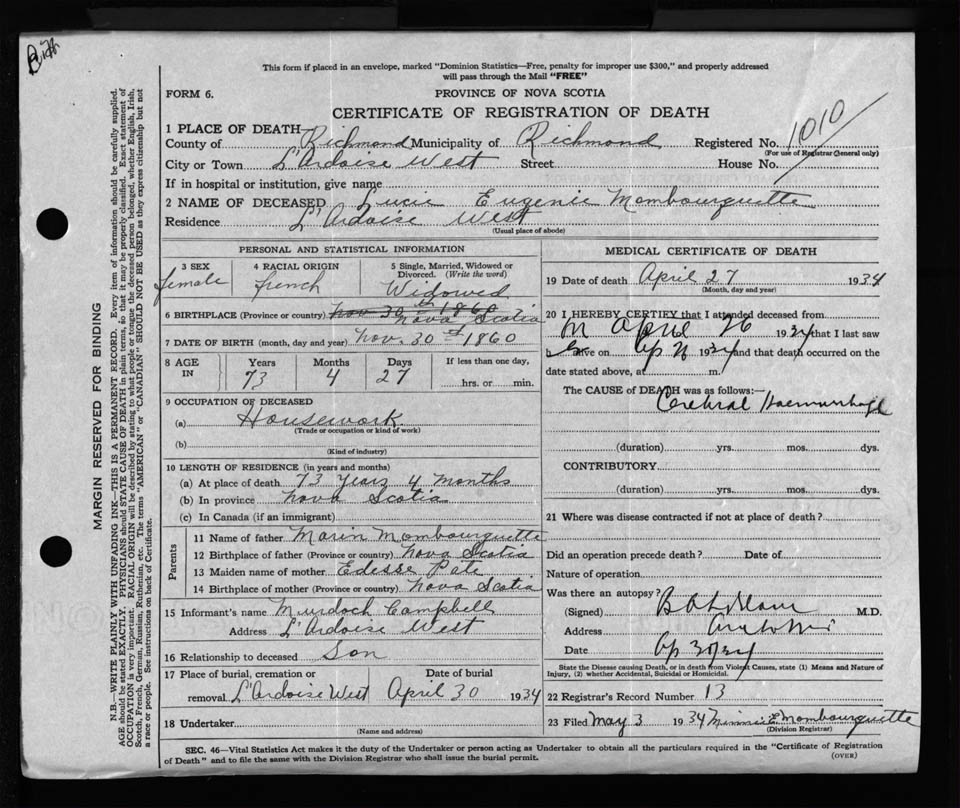 Birth
This form if placed in an envelope, marked "Dominion Statistics—Free, penalty for improper use $300," and properly addressed
will pass through the Mail "FREE"
FORM 6.
PROVINCE OF NOVA SCOTIA
CERTIFICATE OF REGISTRATION OF DEATH
1 PLACE OF DEATH
County of Richmond Municipality of Richmond Registered No. 1010
(For use of Registrar General only)
City or Town L'Ardoise West Street House No.
If in hospital or institution, give name
2 NAME OF DECEASED Lucie Eugenie Mombourquette
Residence L'Ardoise West
(Usual place of abode)
PERSONAL AND STATISTICAL INFORMATION
3 SEX female
4 RACIAL ORIGIN french
5 Single, Married, Widowed or Divorced. (Write the word) Widowed
6 BIRTHPLACE (Province or country) Nov 30th 1860 Nova Scotia
7 DATE OF BIRTH (month, day and year) Nov. 30th 1860
8 AGE IN Years 73 Months 4 Days 27 If less than one day, hrs. or min.
9 OCCUPATION OF DECEASED
(a) Housework
(Trade or occupation or kind of work)
(b)
(Kind of industry)
10 LENGTH OF RESIDENCE (in years and months)
(a) At place of death 73 Years 4 months
(b) In province Nova Scotia
(c) In Canada (if an immigrant)
Parents
11 Name of father Marin Mombourquette
12 Birthplace of father (Province or country) Nova Scotia
13 Maiden name of mother Edesse Pate
14 Birthplace of mother (Province or country) Nova Scotia
15 Informant's name Murdoch Campbell
Address L'Ardoise West
16 Relationship to deceased Son
17 Place of burial, cremation or Date of burial
removal L'Ardoise West April 30 1934
18 Undertaker
(Name and address)
MEDICAL CERTIFICATE OF DEATH
19 Date of death April 27 1934
(Month, day and year)
20 I HEREBY CERTIFY that I attended deceased from
on April 26 1934 that I last saw
alive on Ap 26 1934 and that death occurred on the
date stated above, at m.
The CAUSE of DEATH was as follows:—
Cerebral Haemorrhage
(duration) yrs. mos. dys.
CONTRIBUTORY
(duration) yrs. mos. dys.
21 Where was disease contracted if not at place of death?
Did an operation precede death? Date of
Nature of operation
Was there an autopsy?
(Signed) M.D.
Address
Date Ap 30/34
State the Disease causing Death, or in death from Violent Causes, state (1) Means and Nature of
Injury, (2) whether Accidental, Suicidal or Homicidal.
22 Registrar's Record Number 13
23 Filed May 3 1934 Minnie E Mombourquette
(Division Registrar)
SEC. 46—Vital Statistics Act makes it the duty of the Undertaker or person acting as Undertaker to obtain all the particulars required in the "Certificate of Registration
of Death" and to file the same with the Division Registrar who shall issue the burial permit.
(OVER)
MARGIN RESERVED FOR BINDING
N.B.—WRITE PLAINLY WITH UNFADING INK—THIS IS A PERMANENT RECORD. Every item of information should be carefully supplied.
AGE should be stated EXACTLY. PHYSICIANS should STATE CAUSE OF DEATH in plain terms, so that it may be properly classified. Exact statement of
OCCUPATION is very important. RACIAL ORIGIN will be described by stating to what people or tongue the deceased person belonged, whether English, Irish,
Scotch, French, German, Russian, Ruthenian, etc. The terms "AMERICAN" or "CANADIAN" SHOULD NOT BE USED as they express citizenship but not
a race or people. See instructions on back of Certificate.